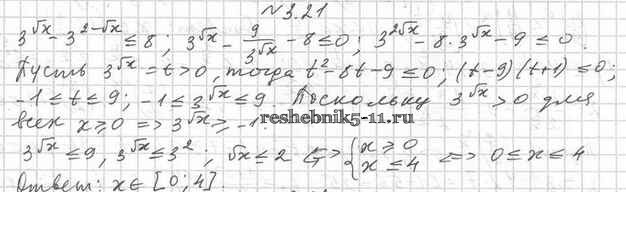 №3.21
3^√x - 3^(2-√x) ≤ 8; 3^√x - 9/3^√x - 8 ≤ 0; 3^(2√x) - 8·3^√x - 9 ≤ 0.
Пусть 3^√x = t > 0, тогда t² - 8t - 9 ≤ 0; (t-9)(t+1) ≤ 0;
-1 ≤ t ≤ 9; -1 ≤ 3^√x ≤ 9. Поскольку 3^√x > 0 для
всех x ≥ 0 => 3^√x ≥ -1.
reshebnik5-11.ru
3^√x ≤ 9, 3^√x ≤ 3²; √x ≤ 2 <=> { x ≥ 0 x ≤ 4 <=> 0 ≤ x ≤ 4
Ответ: x ∈ [0; 4].